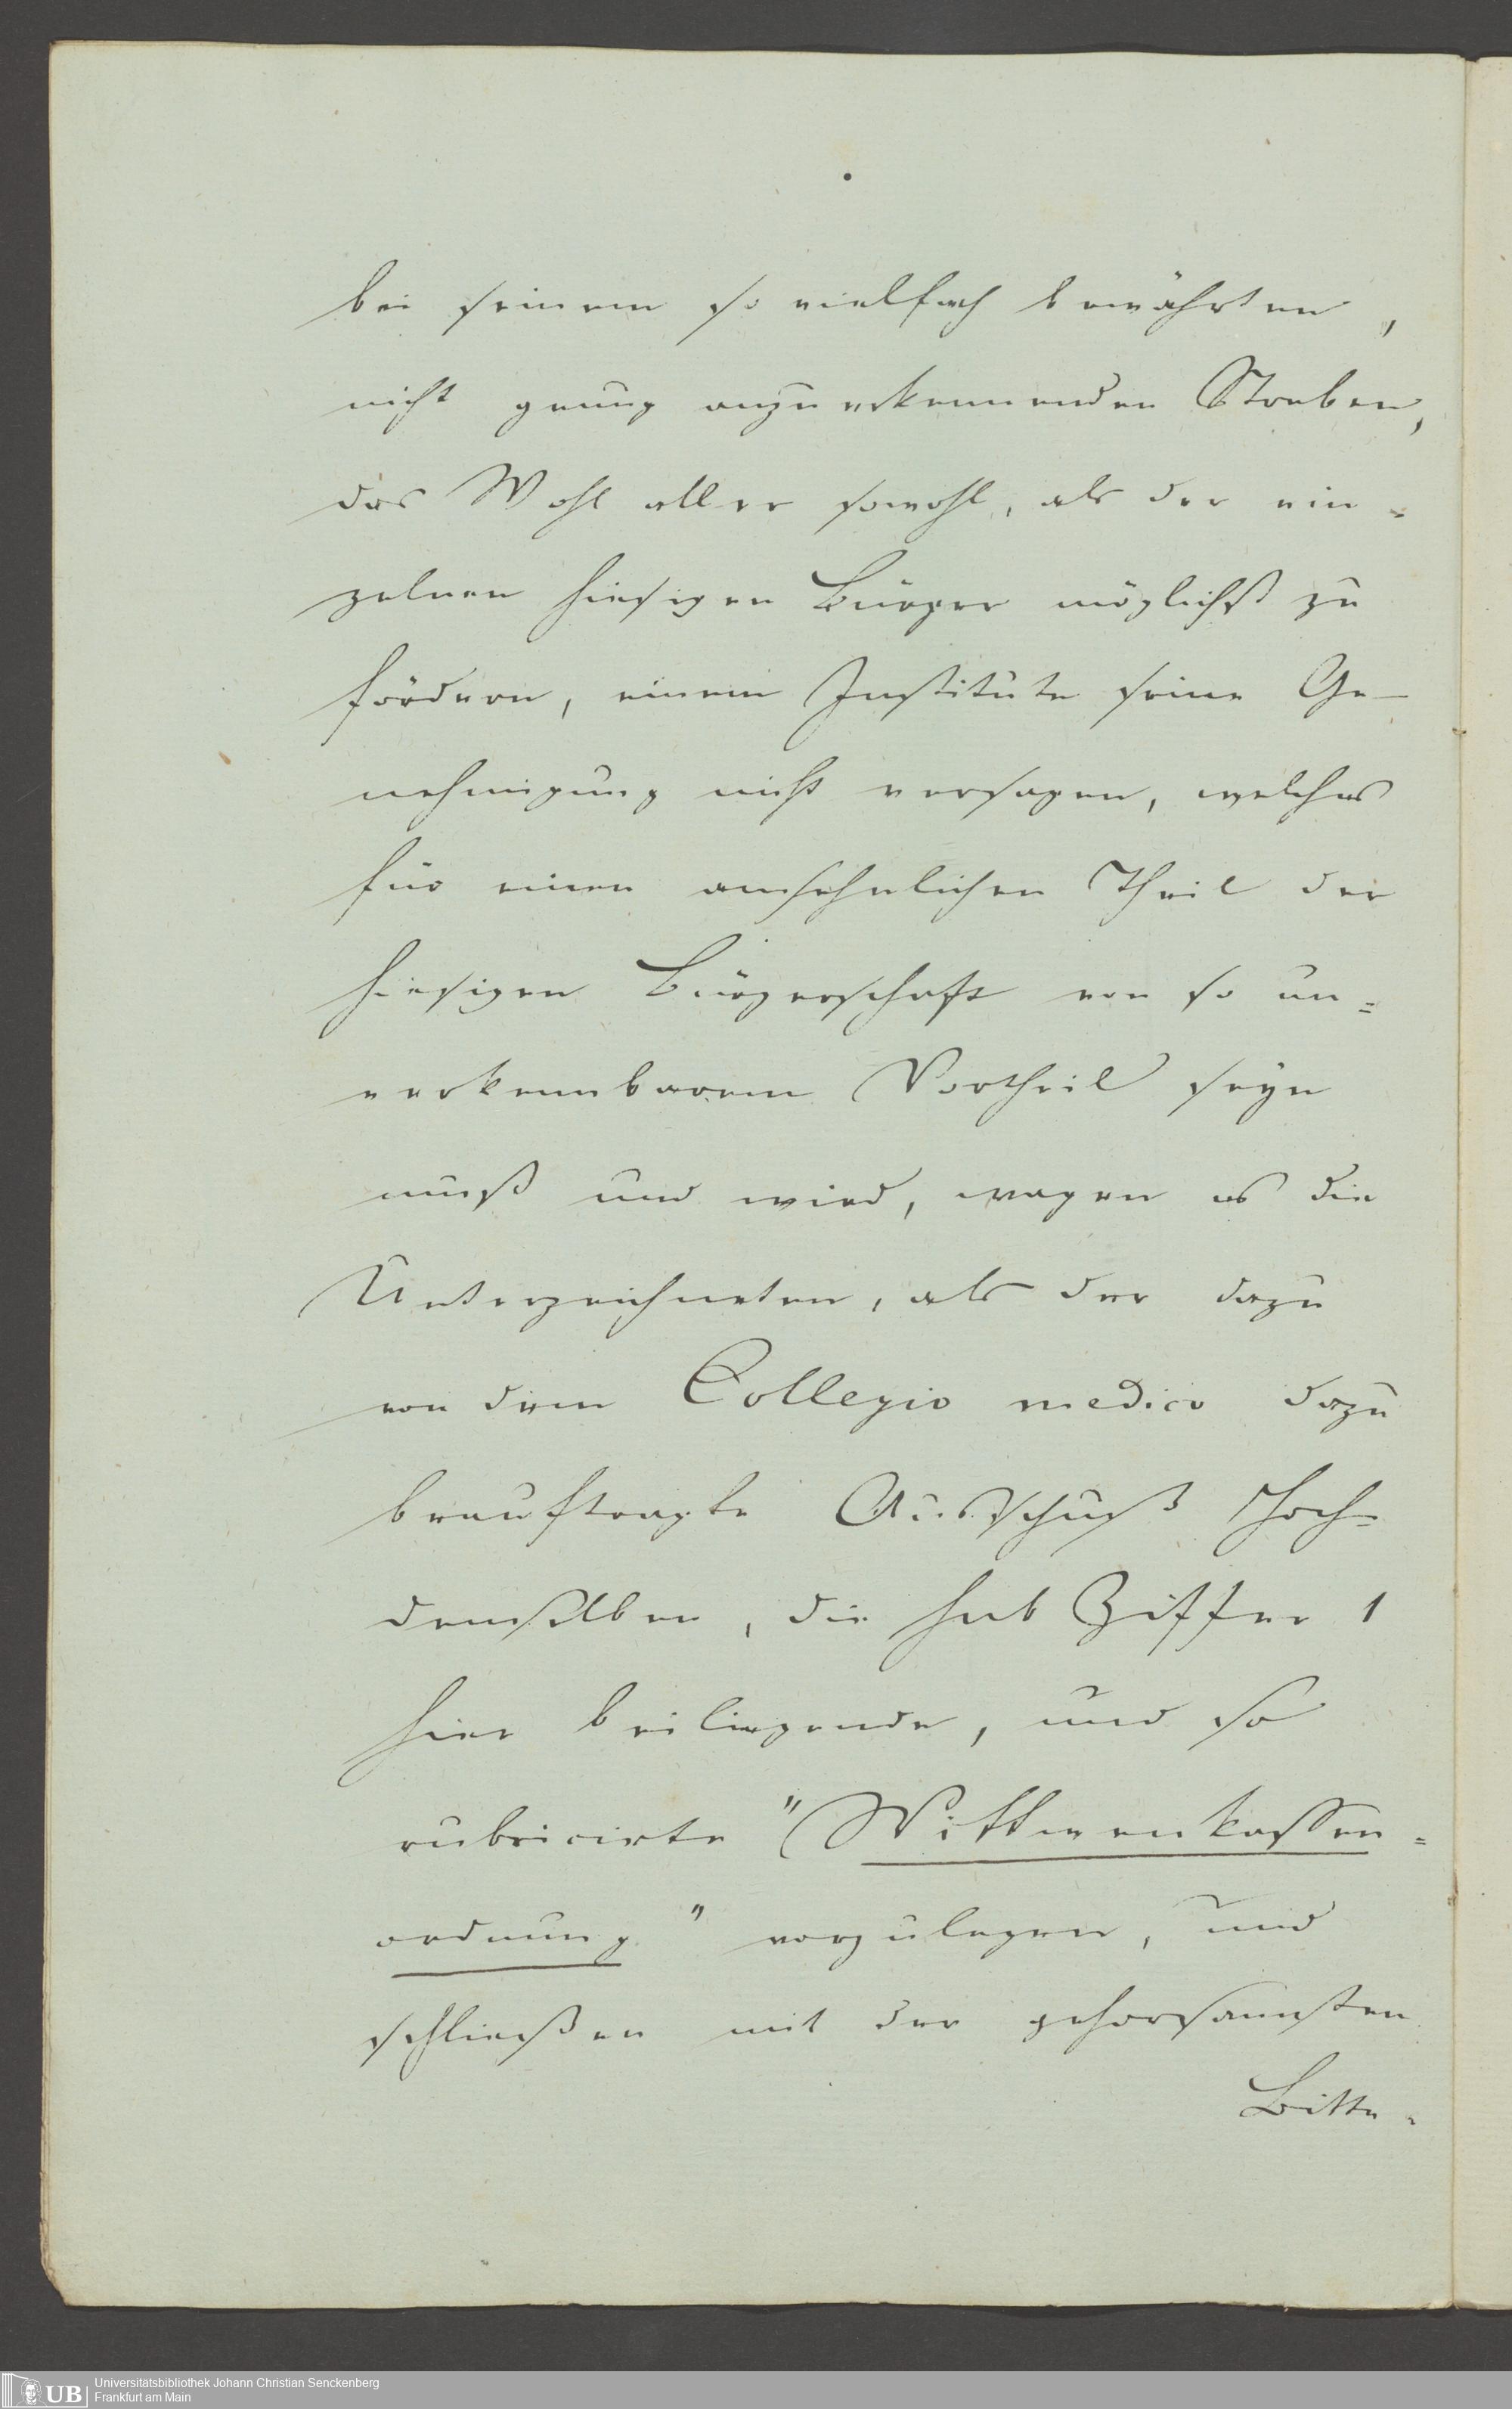 bei seinem so vielfach bewährten,
nicht genug anzuerkennenden Streben,
das Wohl aller sowohl, als der ein-
zelnen hiesigen Bürger möglichst zu
fördern, einem Institute seine Ge-
nehmigung nicht versagen, welches
für einen ansehnlichen Theil der
hiesigen Bürgerschaft von so un=
verkennbarem Vortheil seyn
muß und wird, wagen es die
Unterzeichneten, als der dazu
von dem Collegio medico dazu
beauftragte Ausschuß Hoch-
demselben, die sub Ziffer 1
hier beiliegende, und so
rubricirte "Wittwenkassen=
ordnung" vorzulegen, und
schließen mit der gehorsamsten
Bitte.
UB
Universitätsbibliothek Johann Christian Senckenberg
Frankfurt am Main